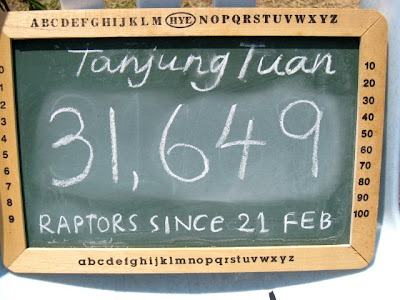 ABCDEFGHIJKLM HYE NOPQRSTUVWXYZ
Tanjung Tuan
31,649
RAPTORS SINCE 21 FEB
0
1
2
3
4
5
6
7
8
9
10
20
30
40
50
60
70
80
90
100
abcdefghijklmnopqrstuvwxyz